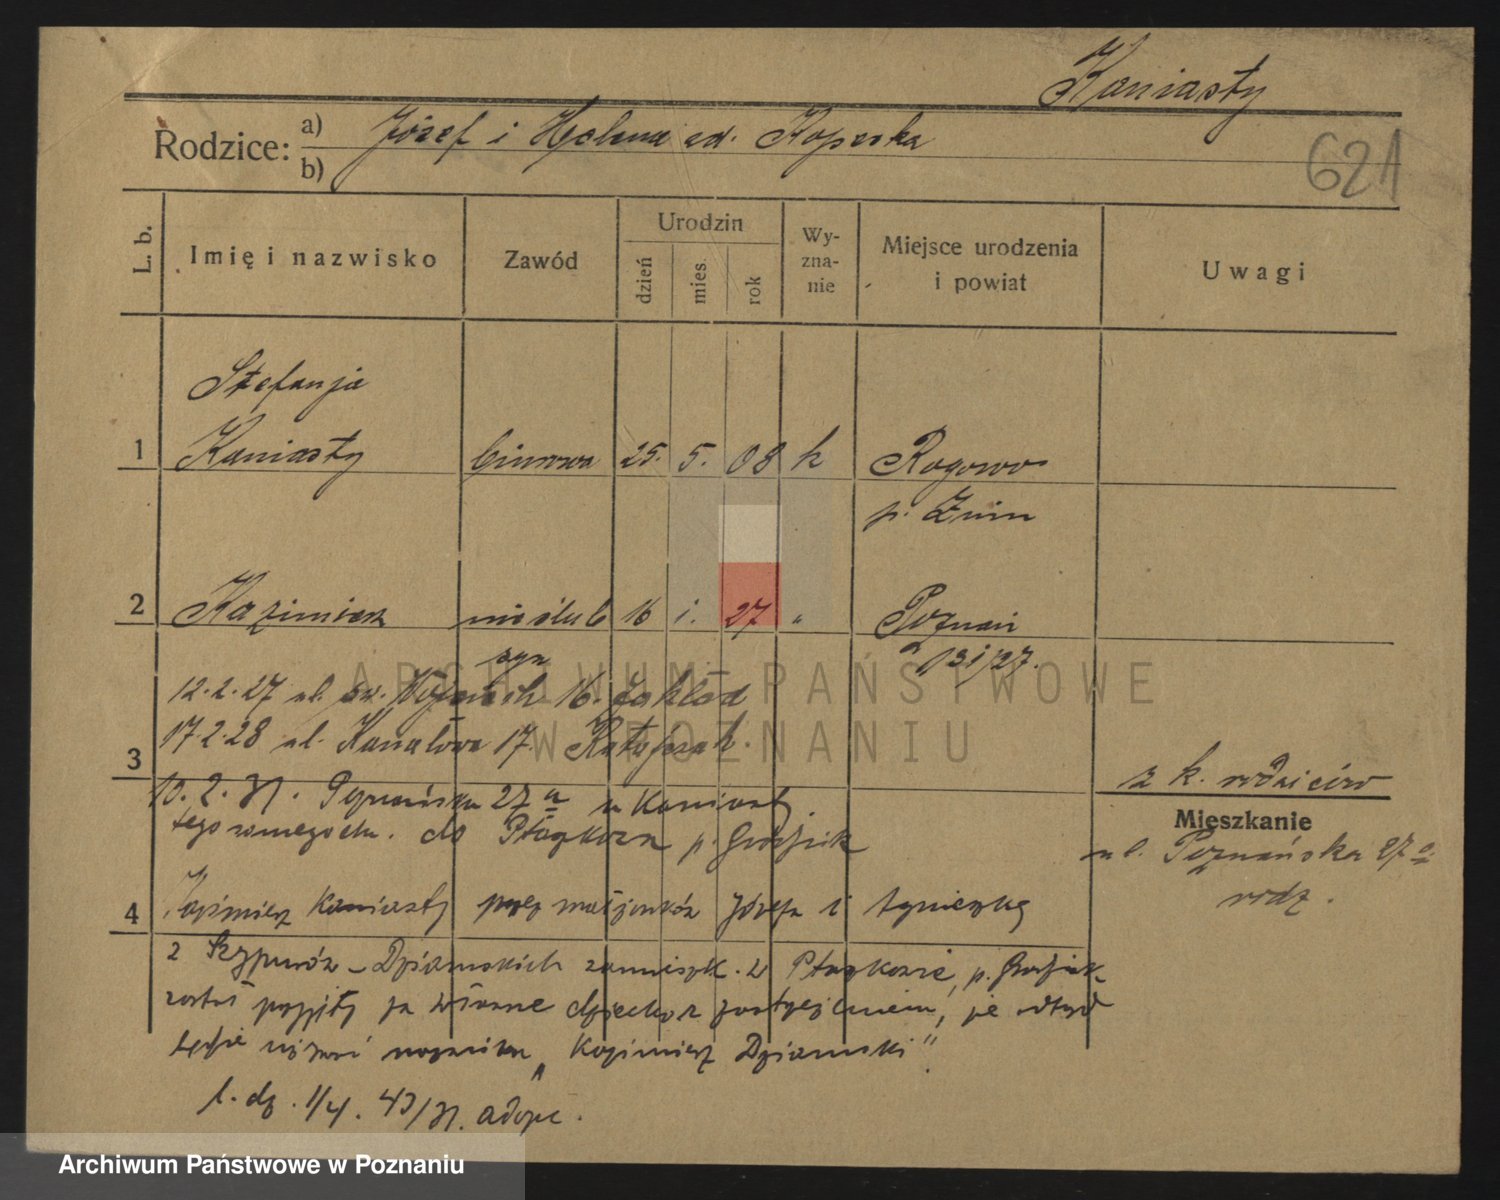 Kaniasty
Rodzice: a) Józef i Helena zd. Koperska
b)
621
L. b.
Imię i nazwisko
Zawód
Urodzin
dzień
mies.
rok
Wy-
zna-
nie
Miejsce urodzenia
i powiat
Uwagi
Stefanja
1 Kaniasty biurowa 25. 5. 08 k Rogowo
p. Żnin
2 Kazimierz nieślub 16 1. 27 " Poznań
syn
12.2.27 ul. św. Wojciech 16. Zakład
17.2.28 ul. Kanałowa 17. Ratajczak.
3
z k. rodziców
10.2.31. Poznańska 27a u Kaniasty
Mieszkanie
tego samego dn. do Ptaszkowa p. Grodzisk
ul. Poznańska 27a
rodz.
4 Kazimierz Kaniasty przez małżonków Józefa i Agnieszkę
z Dziamskich zamieszk. w Ptaszkowie, p. Grodzisk
został przyjęty za własne dziecko z zastrzeżeniem, że odtąd
będzie używać nazwiska „Kazimierz Dziamski".
l. dz. 1/4. 43/31. adopc.
ARCHIWUM PAŃSTWOWE
W POZNANIU
Archiwum Państwowe w Poznaniu